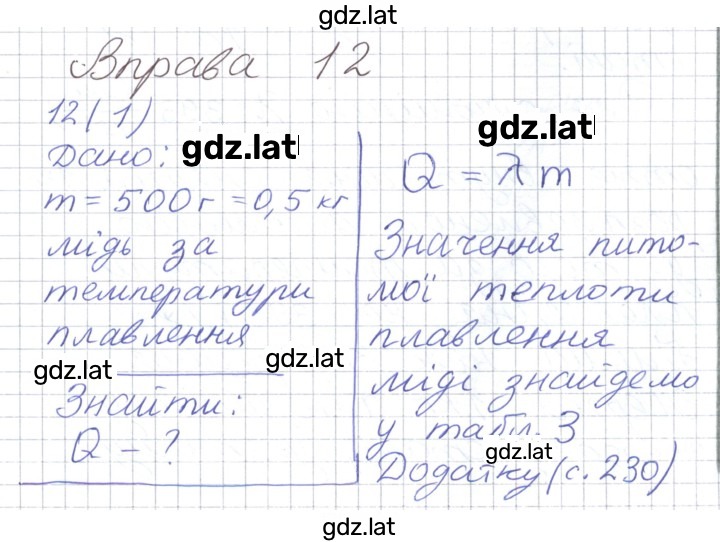 gdz.lat
Вправа 12
12(1)
gdz.lat
Дано: gdz.lat
Q = λ m
m = 500 г = 0,5 кг
мідь за
температури
плавлення
gdz.lat
gdz.lat
Знайти:
Q - ?
Значення пито-
мої теплоти
плавлення
міді знайдемо
у табл. 3
gdz.lat
Додатку (с. 230)
gdz.lat